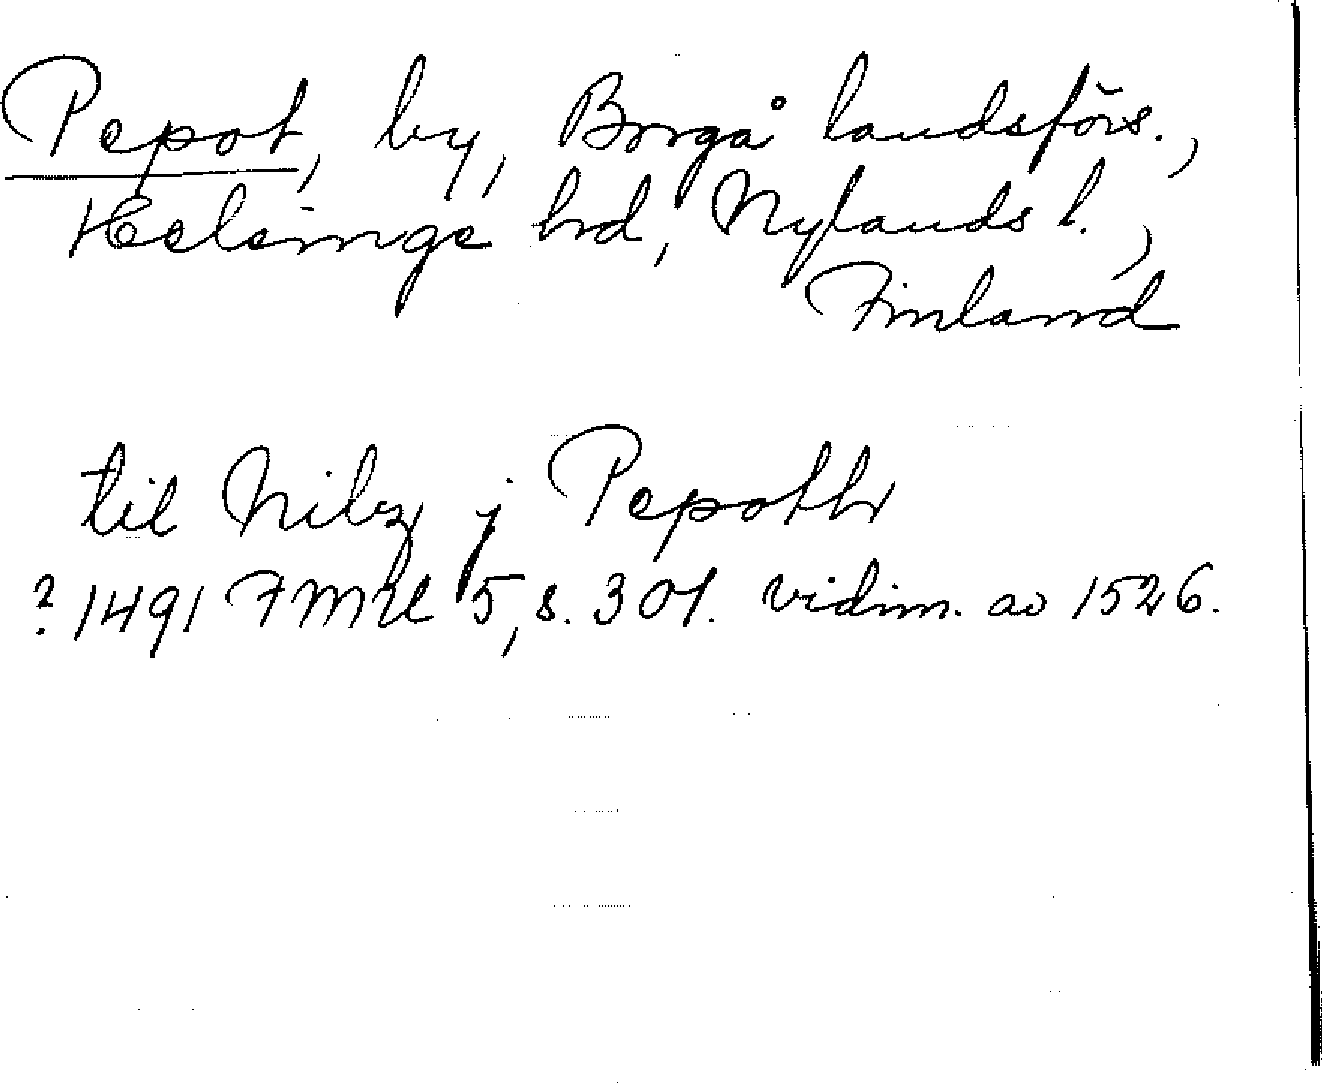 Pepot, by, Borgå landsförs.,
Helsinge hrd, Nylands l.,
Finland
til Nilz j Pepoth
? 1491 FMU 5, s. 301. vidim. av 1526.